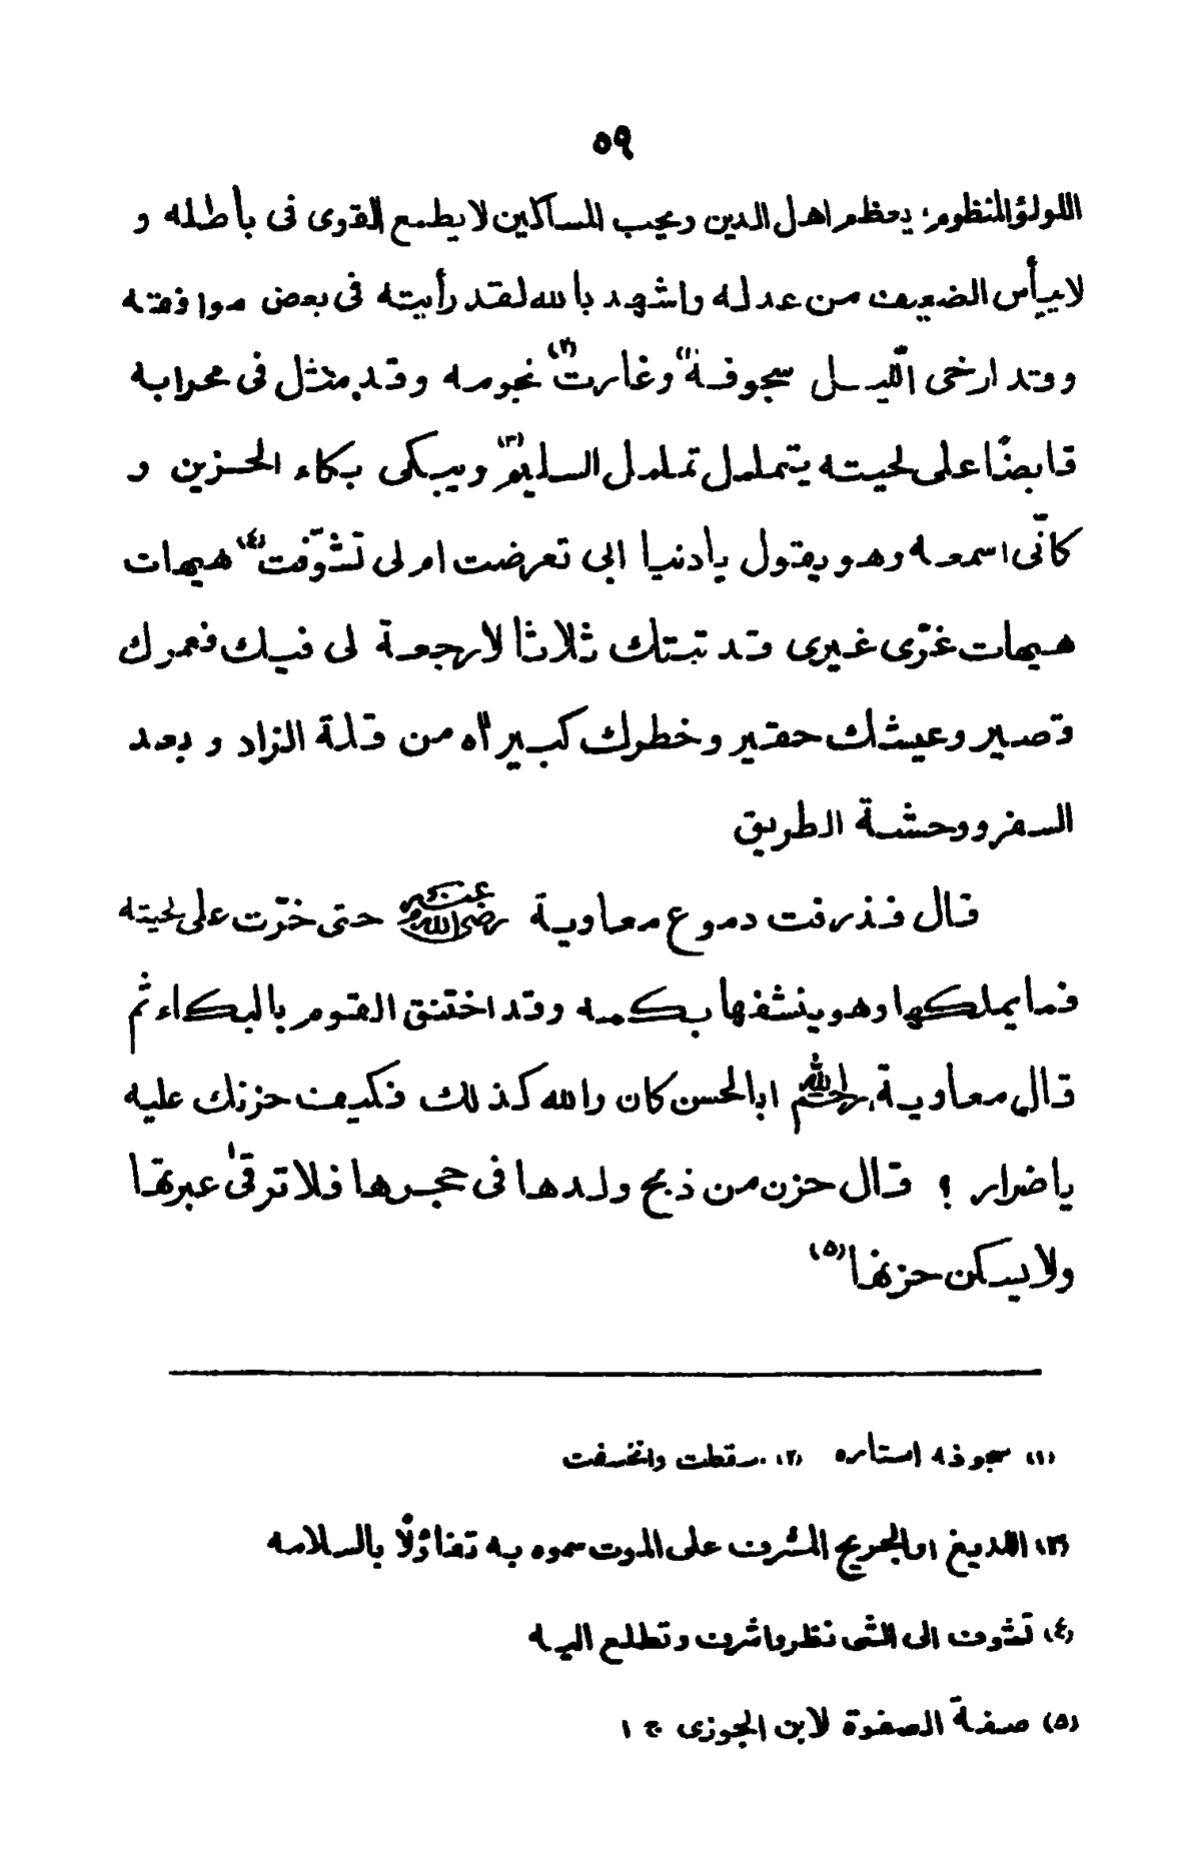 ٥٩
اللولؤالمنظوم؛ يعظم اهل الدين ويحب المساكين لا يطمع القوى فى باطله و
لا ييأس الضعيف من عدله واشهد بالله لقد رأيته فى بعض موافقته
وقد ارخى اللّيل سجوفة(١) وغارت(٢) نجومه وقد مثل فى محرابه
قابضًا على لحيته يتململ تململ السليم(٣) ويبكى بكاء الحزين و
كانّى اسمعه وهو يقول يا دنيا ابى تعرضت ام لى تشوّفت(٤) هيهات
هيهات غرّى غيرى قد تبتتك ثلاثا لا رجعة لى فيك فعمرك
قصير وعيشك حقير وخطرك كبير اٰه من قلة الزاد و بعد
السفر ووحشة الطريق
قال فذرفت دموع معاوية رضى الله عنه حتى خرّت على لحيته
فما يملكها وهو ينشفها بكمه وقد اختنق القوم بالبكاء ثم
قال معاوية، رحم الله ابا الحسن كان والله كذلك فكيف حزنك عليه
يا ضرار ؟ قال حزن من ذبح ولدها فى حجرها فلا ترقىٰ عبرتها
ولا يسكن حزنها(٥)
(١) سجوفه استاره (٢) سقطت وانخسفت
(٣) اللديغ او الجريح المشرف على الموت سموه به تفاؤلًا بالسلامه
(٤) تشوف الى الشى نظر واشرف وتطلع اليه
(٥) صفة الصفوة لابن الجوزى ج ١